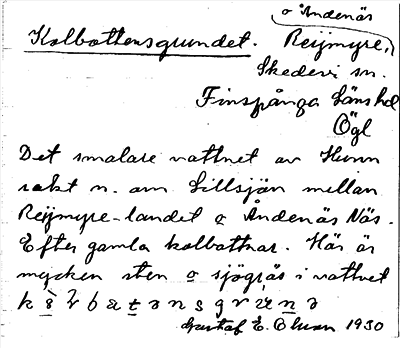 o Åndenäs
Kolbottensgrundet. Reijmyre,
Skedevi sn.
Finspånga Länshd
Ögl
Det smalare vattnet av Hunn
rakt n. om Lillsjön mellan
Reijmyre-landet o Åndenäs Näs.
Efter gamla kolbottnar. Här är
mycken sten o sjögräs i vattnet
Gustaf E. Olsson 1930